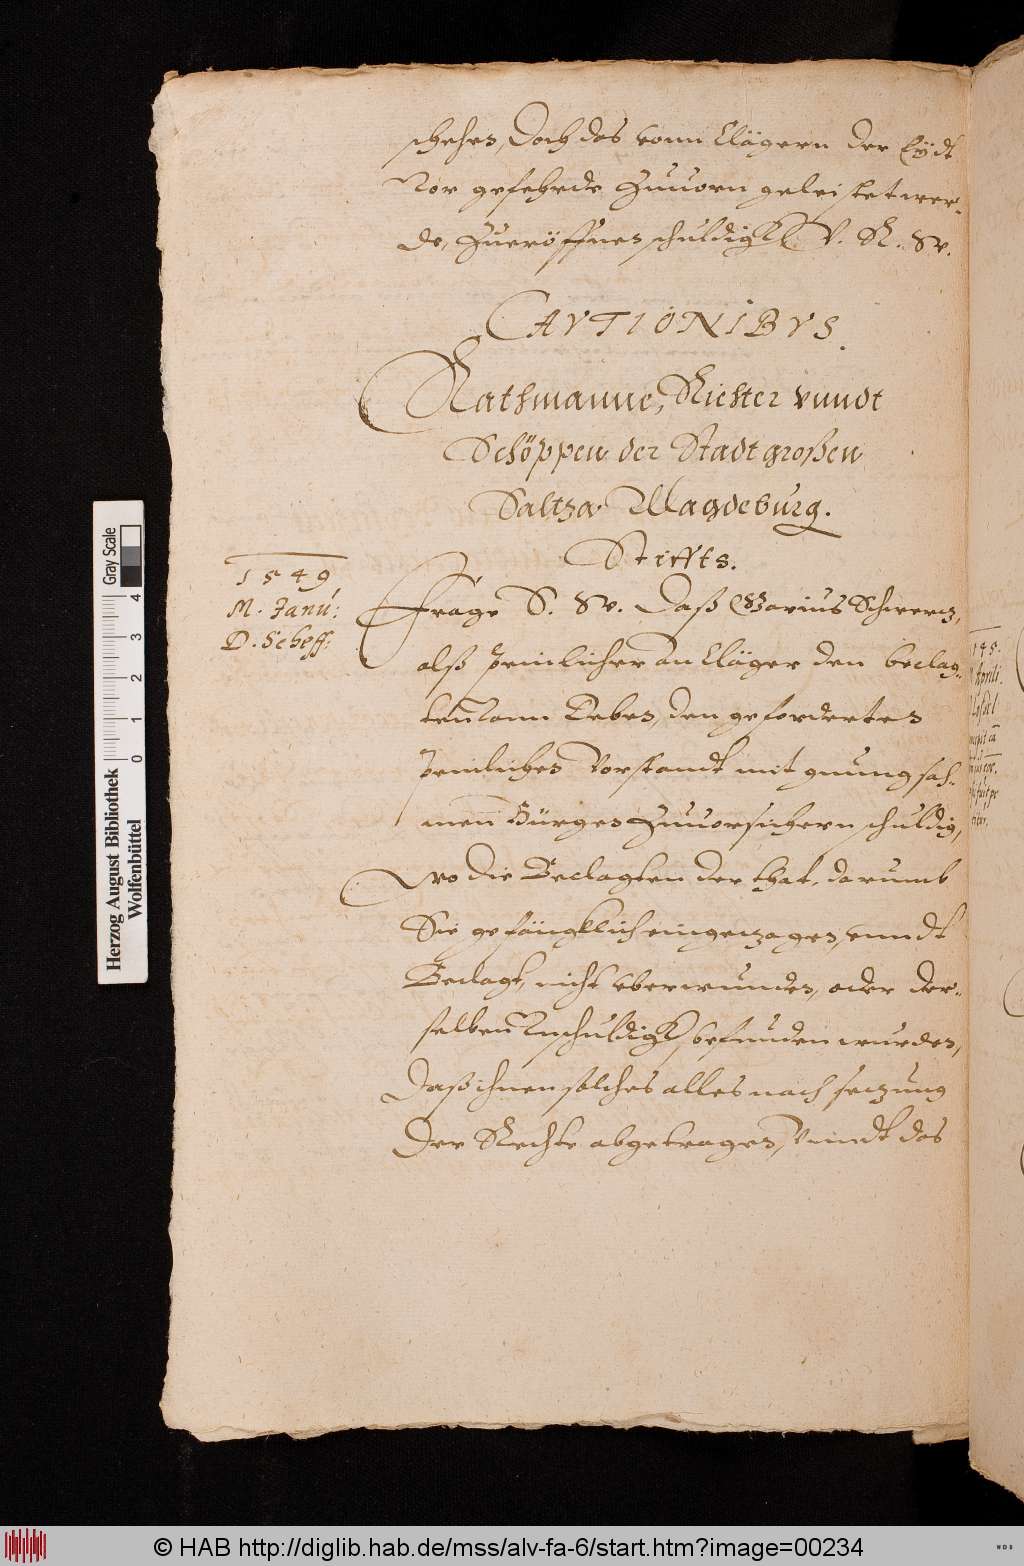 schehen, Doch das vonn Clägern der Eydt
Vor gefehrde Zuuorn geleistet wer-
de, Zueröffnen schuldigk V. R. W.
CAVTIONIBVS.
Rathmanne, Richter vnndt
Schöppen der Stadt großen
Saltza Magdeburg.
Stiffts.
1549
M. Janu:
D. Scheff:
Frage S. W. Daß Marius Schwercz,
alß peinlicher an Cläger den beclag-
ten den geforderten
peinlichen Vorstandt mit gnungsah-
men Bürgen Zuuorsichern schuldig,
wo die Beclagten der that, darumb
Sie gefängklich eingezogen, vnndt
Beclagt, nicht vberwunden, oder der-
selben Vnschuldigk befunden wurden,
Daß ihnen solches alles nach saczung
Der Rechte abgetragen, Vnndt das
Herzog August Bibliothek
Wolfenbüttel
0 1 2 3 4
Gray Scale
145.
Aprili
© HAB http://diglib.hab.de/mss/alv-fa-6/start.htm?image=00234
WDB